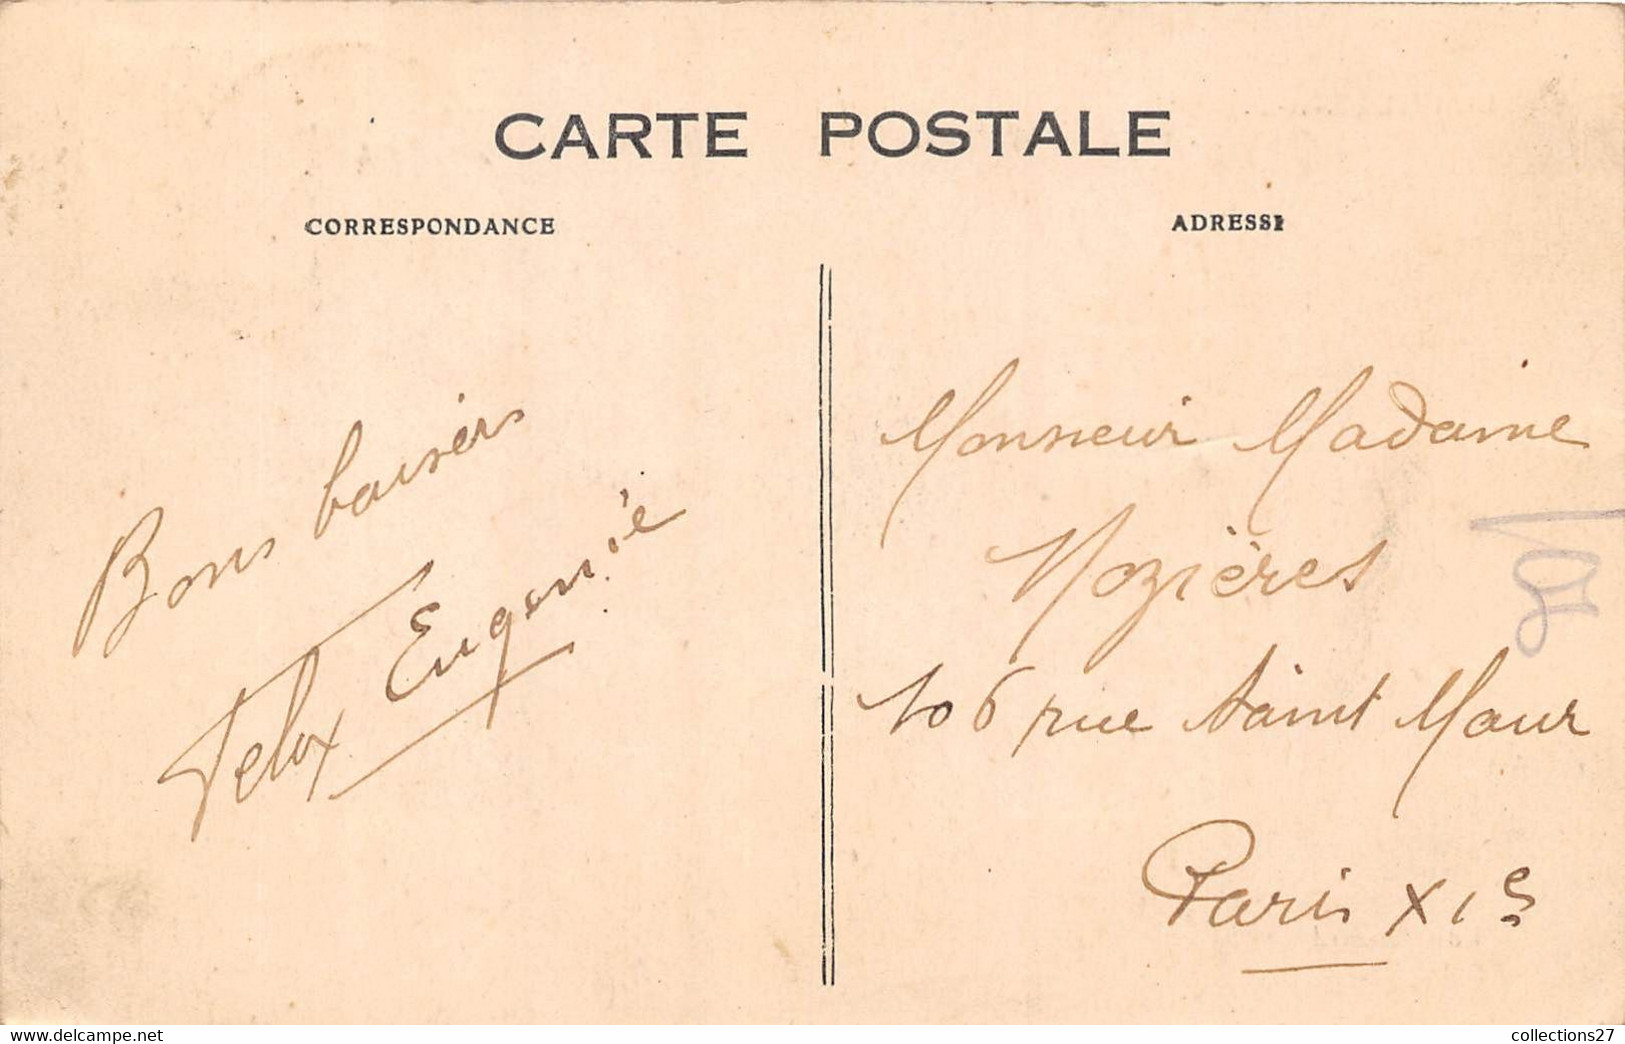 CARTE POSTALE
CORRESPONDANCE
ADRESSE
Bons baisers
Felix Eugenie
Monsieur Madame
Mozières
106 rue Saint Maur
Paris XIe
www.delcampe.net
collections27